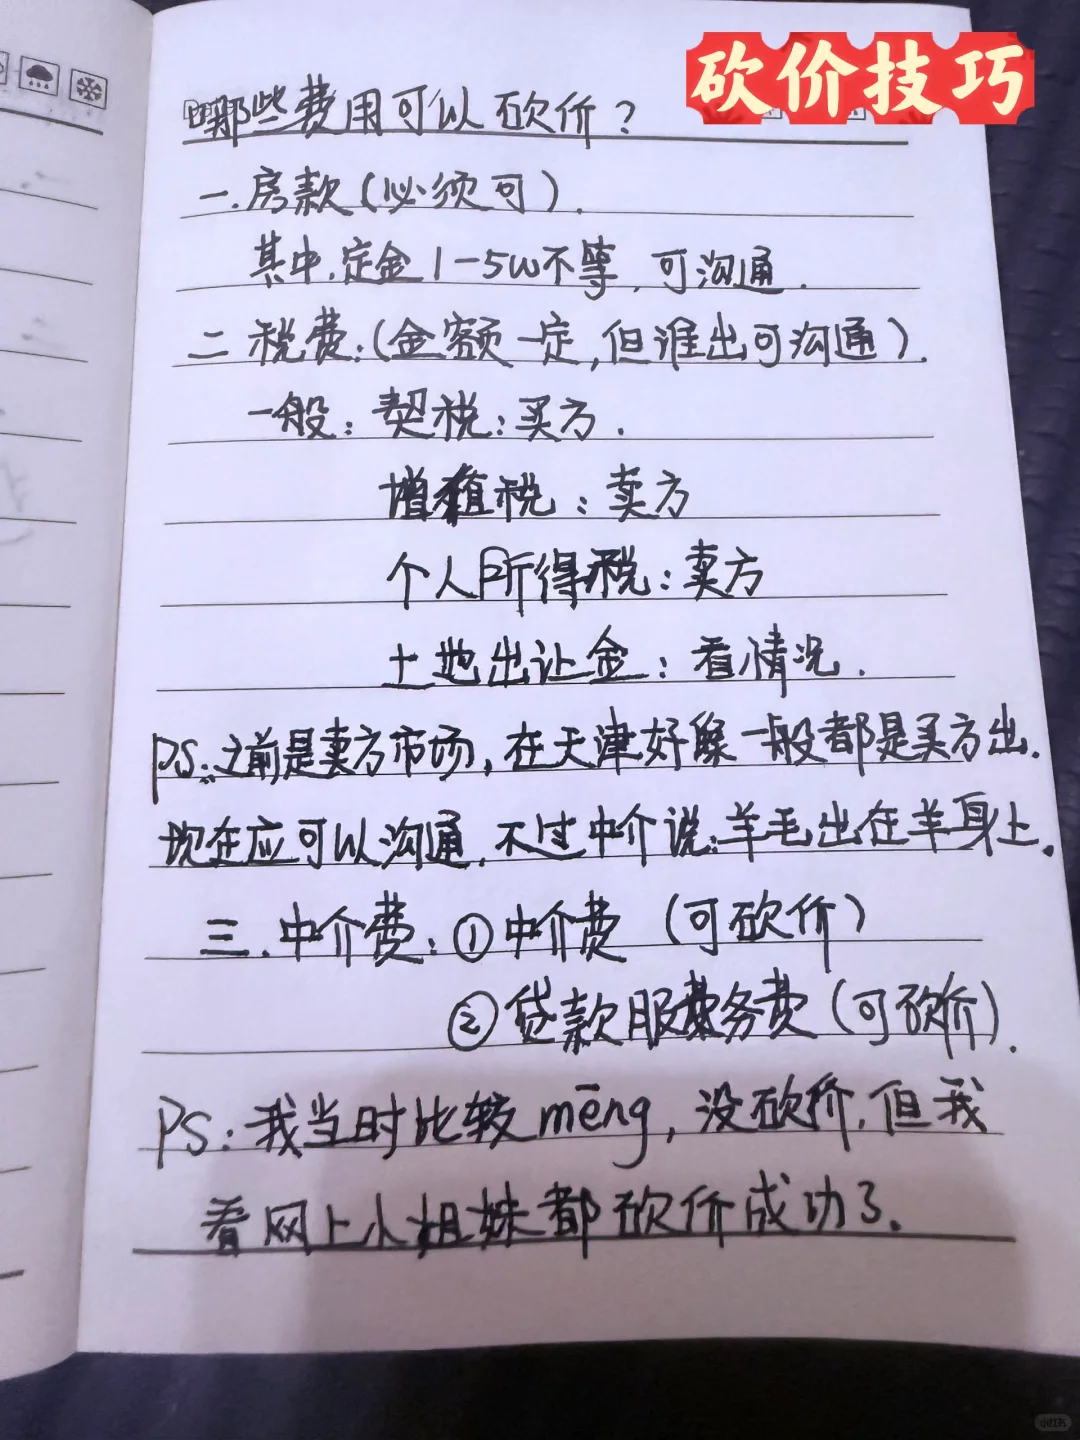 砍价技巧
哪些费用可以砍价?
一.房款(必须可).
其中,定金1-5w不等,可沟通.
二 税费:(金额一定,但谁出可沟通).
一般:契税:买方.
增值税:卖方
个人所得税:卖方
土地出让金:看情况.
PS:之前是卖方市场,在天津好像一般都是买方出.
现在应可以沟通.不过中介说:羊毛出在羊身上.
三.中介费:①中介费(可砍价)
②贷款服务费(可砍价).
PS:我当时比较mēng,没砍价,但我
看网上小姐妹都砍价成功了.